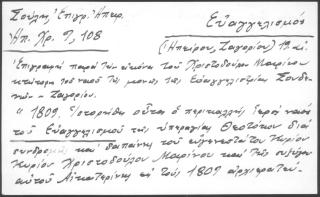 Σούλης, Ἐπιγρ. Ἠπειρ.
Ἠπ. Χρ. 9, 108
Εὐαγγελισμός
(Ἠπείρου, Ζαγορίου) 19. αἰ.
Ἐπιγραφή παρά τήν εἰκόνα τοῦ Χριστοδούλου Μαρίνου
κτίτορος τοῦ ναοῦ τῆς μονῆς τῆς Εὐαγγελιστρίας Σουδε-
νῶν - Ζαγορίου.
"1809 Ἱστορήθη οὗτος ὁ περικαλλής ἱερός ναός
τοῦ Εὐαγγελισμοῦ τῆς ὑπεραγίας Θεοτόκου διά
συνδρομῆς καί δαπάνης τοῦ εὐγενεστάτου Κυρίου
Κυρίου Χριστοδούλου Μαρίνου καί τῆς συζύγου
αὐτοῦ Αἰκατερίνης ἐν τοὺς 1809 ἀρχιερατεύ-